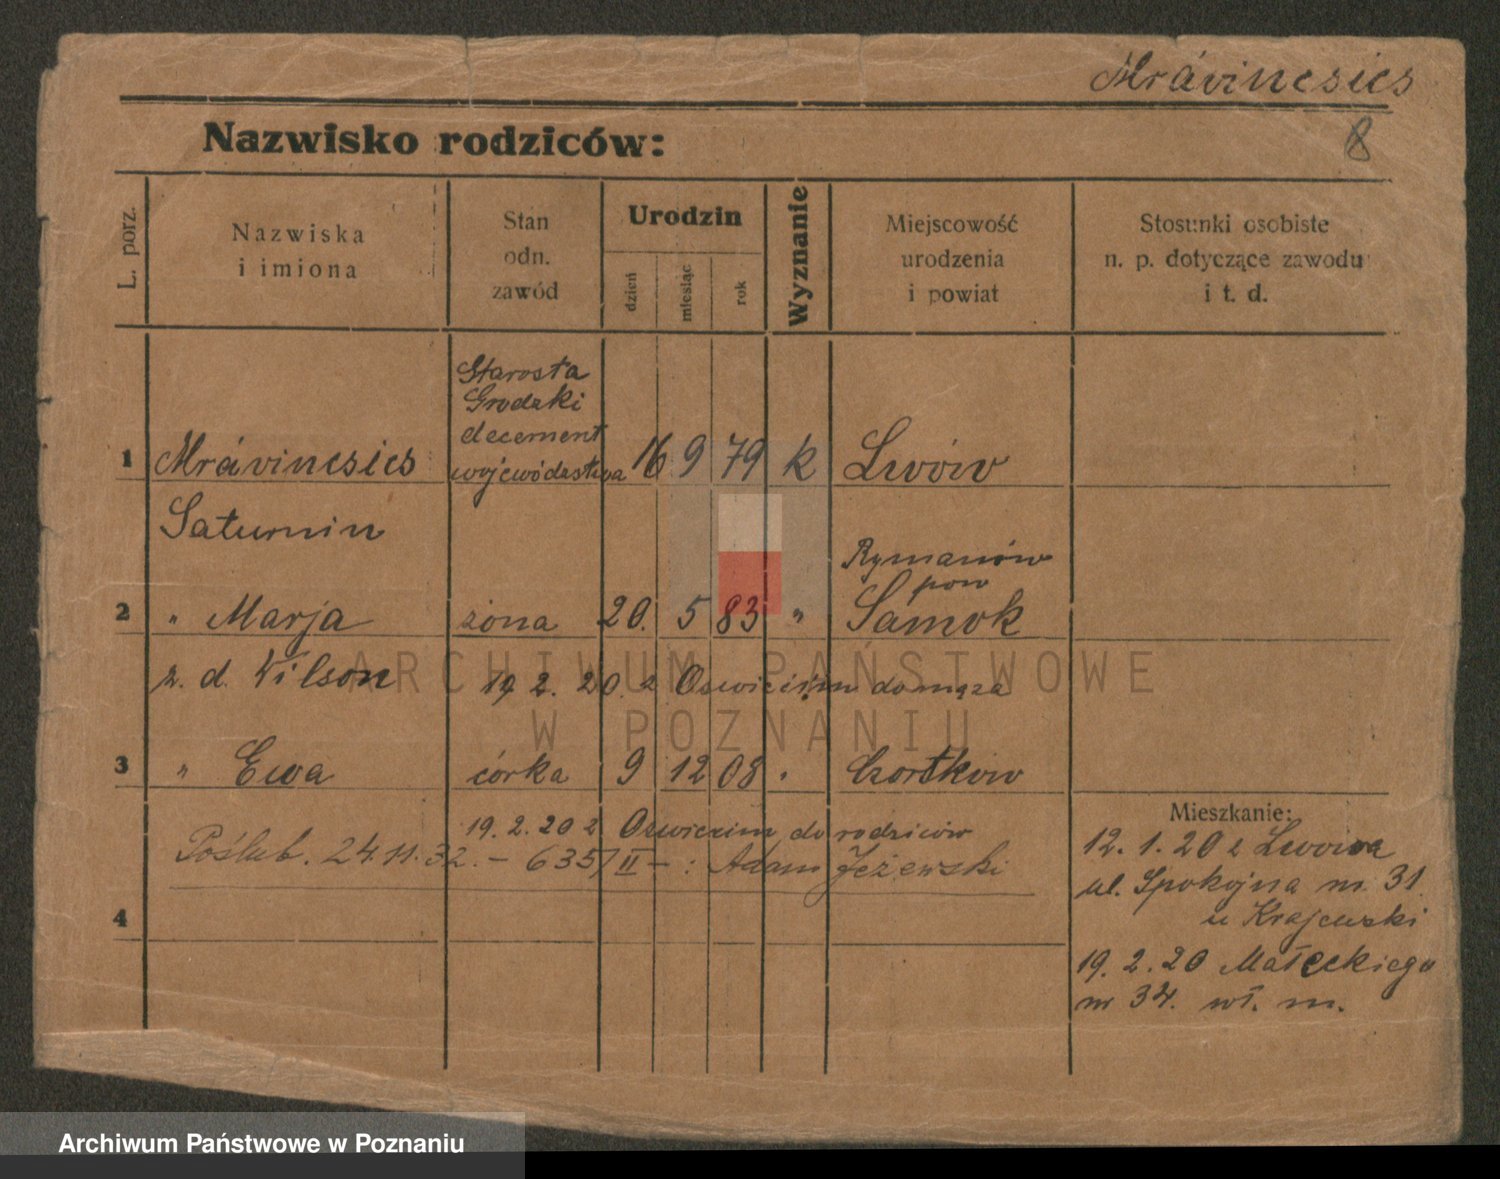 Mrávincsics
8
Nazwisko rodziców:
L. porz.
Nazwiska
i imiona
Stan
odn.
zawód
Urodzin
dzień
miesiąc
rok
Wyznanie
Miejscowość
urodzenia
i powiat
Stosunki osobiste
n. p. dotyczące zawodu
i t. d.
Starosta
Grodzki
decernent
województwa
1 Mrávincsics 16 9 79 k Lwów
Saturnin
Rymanów
pow
2 " Marja żona 20. 5 83 " Samok
z. d. Wilson 19 2. 20. z Oswięcim do męża
3 " Ewa córka 9 12 08 " Czortków
19. 2. 20 z Oswięcim do rodziców
Poślub. 24.11.32. - 635/II - : Adam Jeżewski
4
Mieszkanie:
12. 1. 20 z Lwowa
ul. Spokojna nr. 31
u Krajewski
19. 2. 20 Małeckiego
nr 34. wł. m.
ARCHIWUM PAŃSTWOWE
W POZNANIU
Archiwum Państwowe w Poznaniu